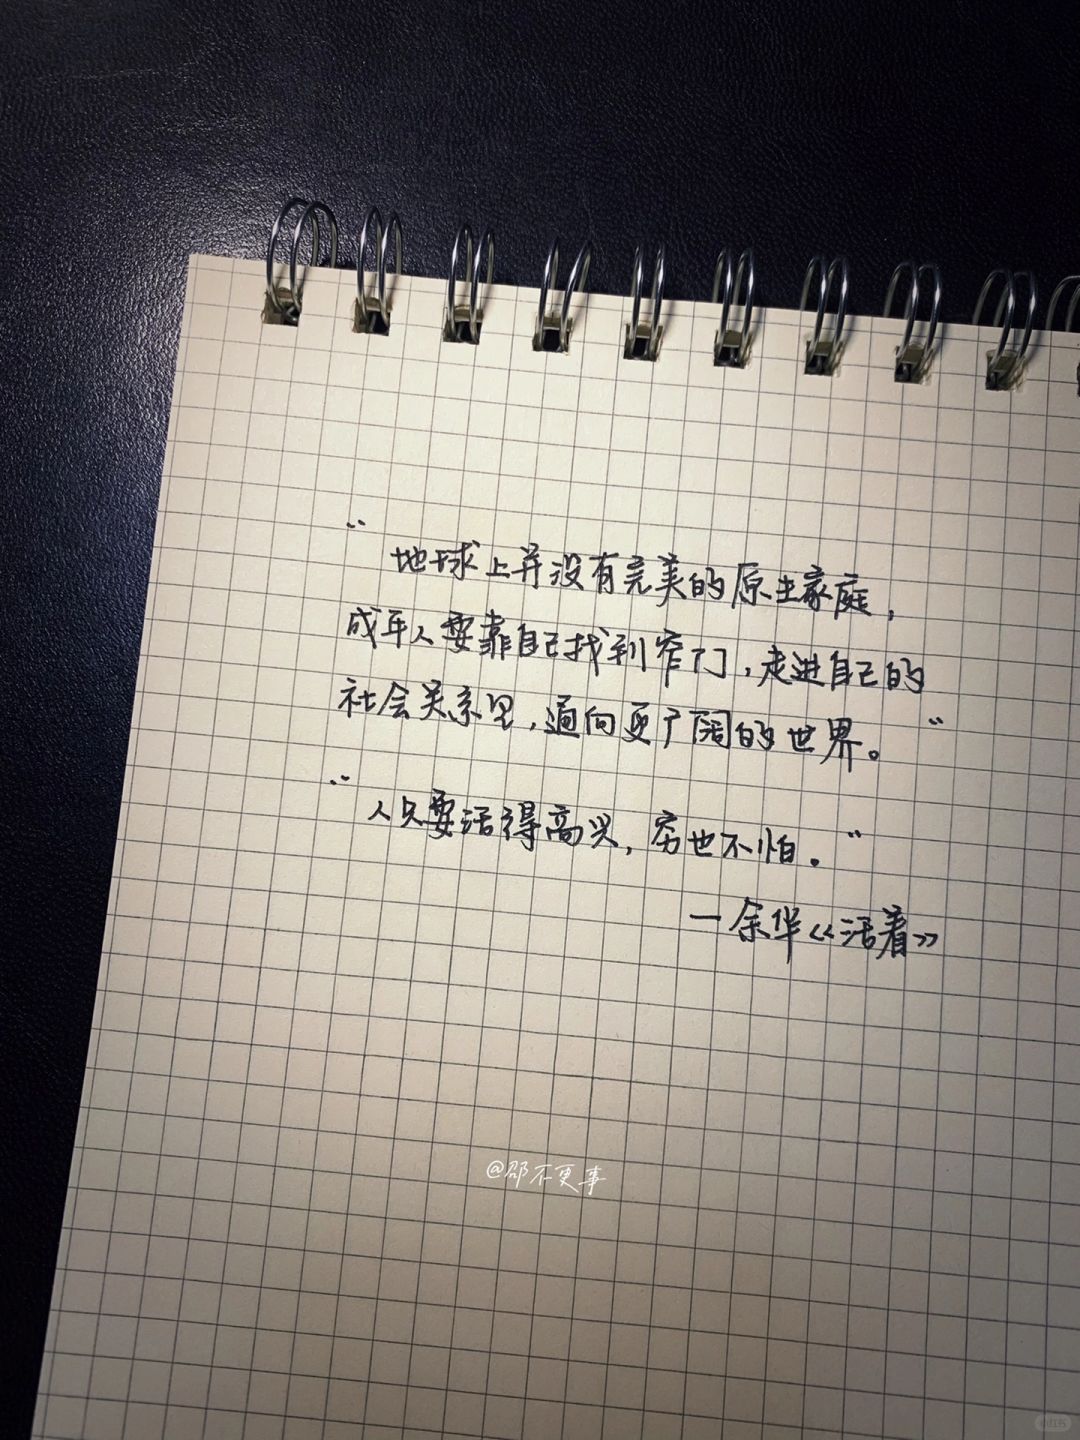 “地球上并没有完美的原生家庭，
成年人要靠自己找到窄门，走进自己的
社会关系里，通向更广阔的世界。”
“人只要活得高兴，穷也不怕。”
—余华《活着》
@邵不更事
小红书